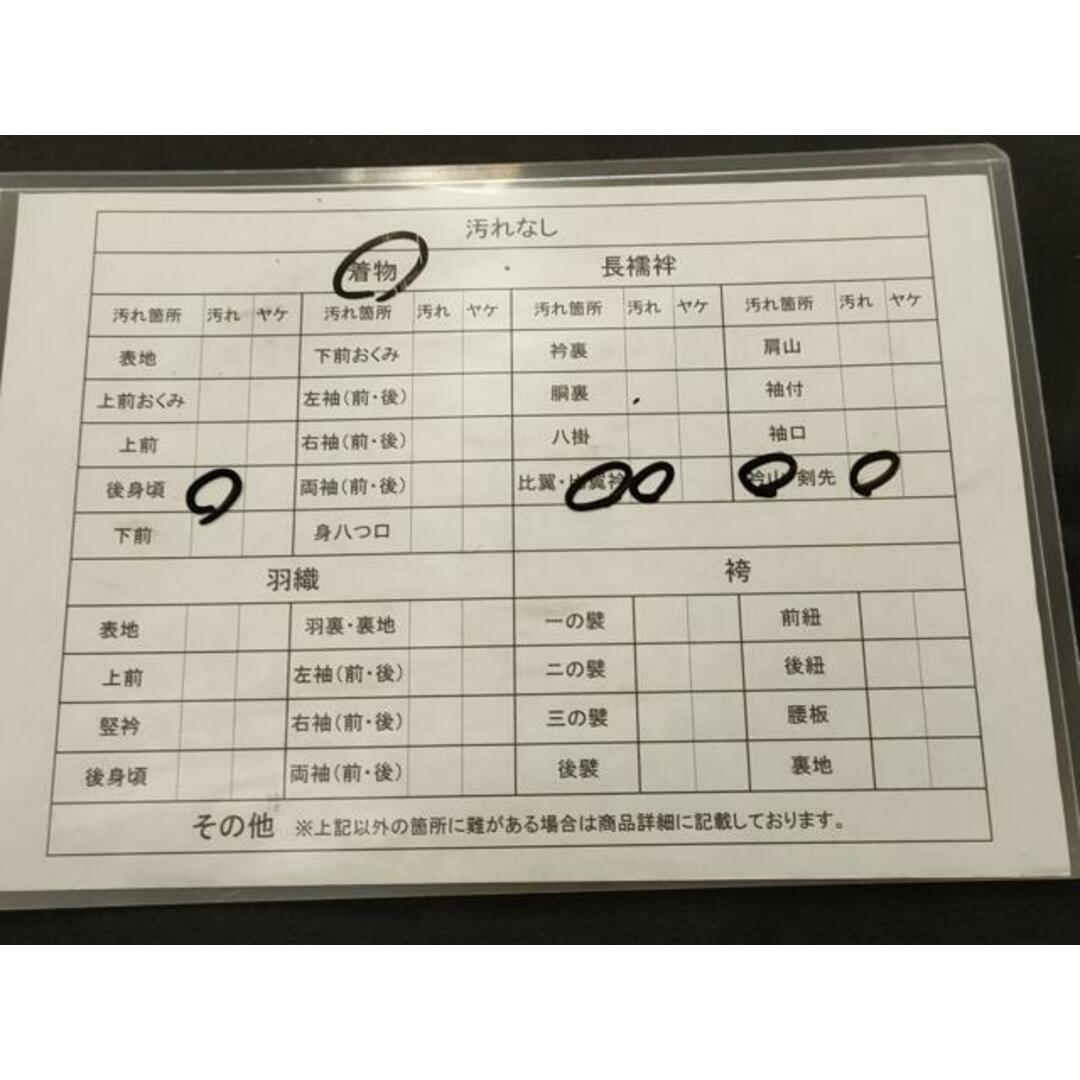 汚れなし
着物 ・ 長襦袢
汚れ箇所 汚れ ヤケ 汚れ箇所 汚れ ヤケ 汚れ箇所 汚れ ヤケ 汚れ箇所 汚れ ヤケ
表地 下前おくみ 衿裏 肩山
上前おくみ 左袖(前・後) 胴裏 袖付
上前 右袖(前・後) 八掛 袖口
後身頃 両袖(前・後) 比翼・比翼衿 衿山・剣先
下前 身八つ口
羽織 袴
表地 羽裏・裏地 一の襞 前紐
上前 左袖(前・後) ニの襞 後紐
竪衿 右袖(前・後) 三の襞 腰板
後身頃 両袖(前・後) 後襞 裏地
その他 ※上記以外の箇所に難がある場合は商品詳細に記載しております。